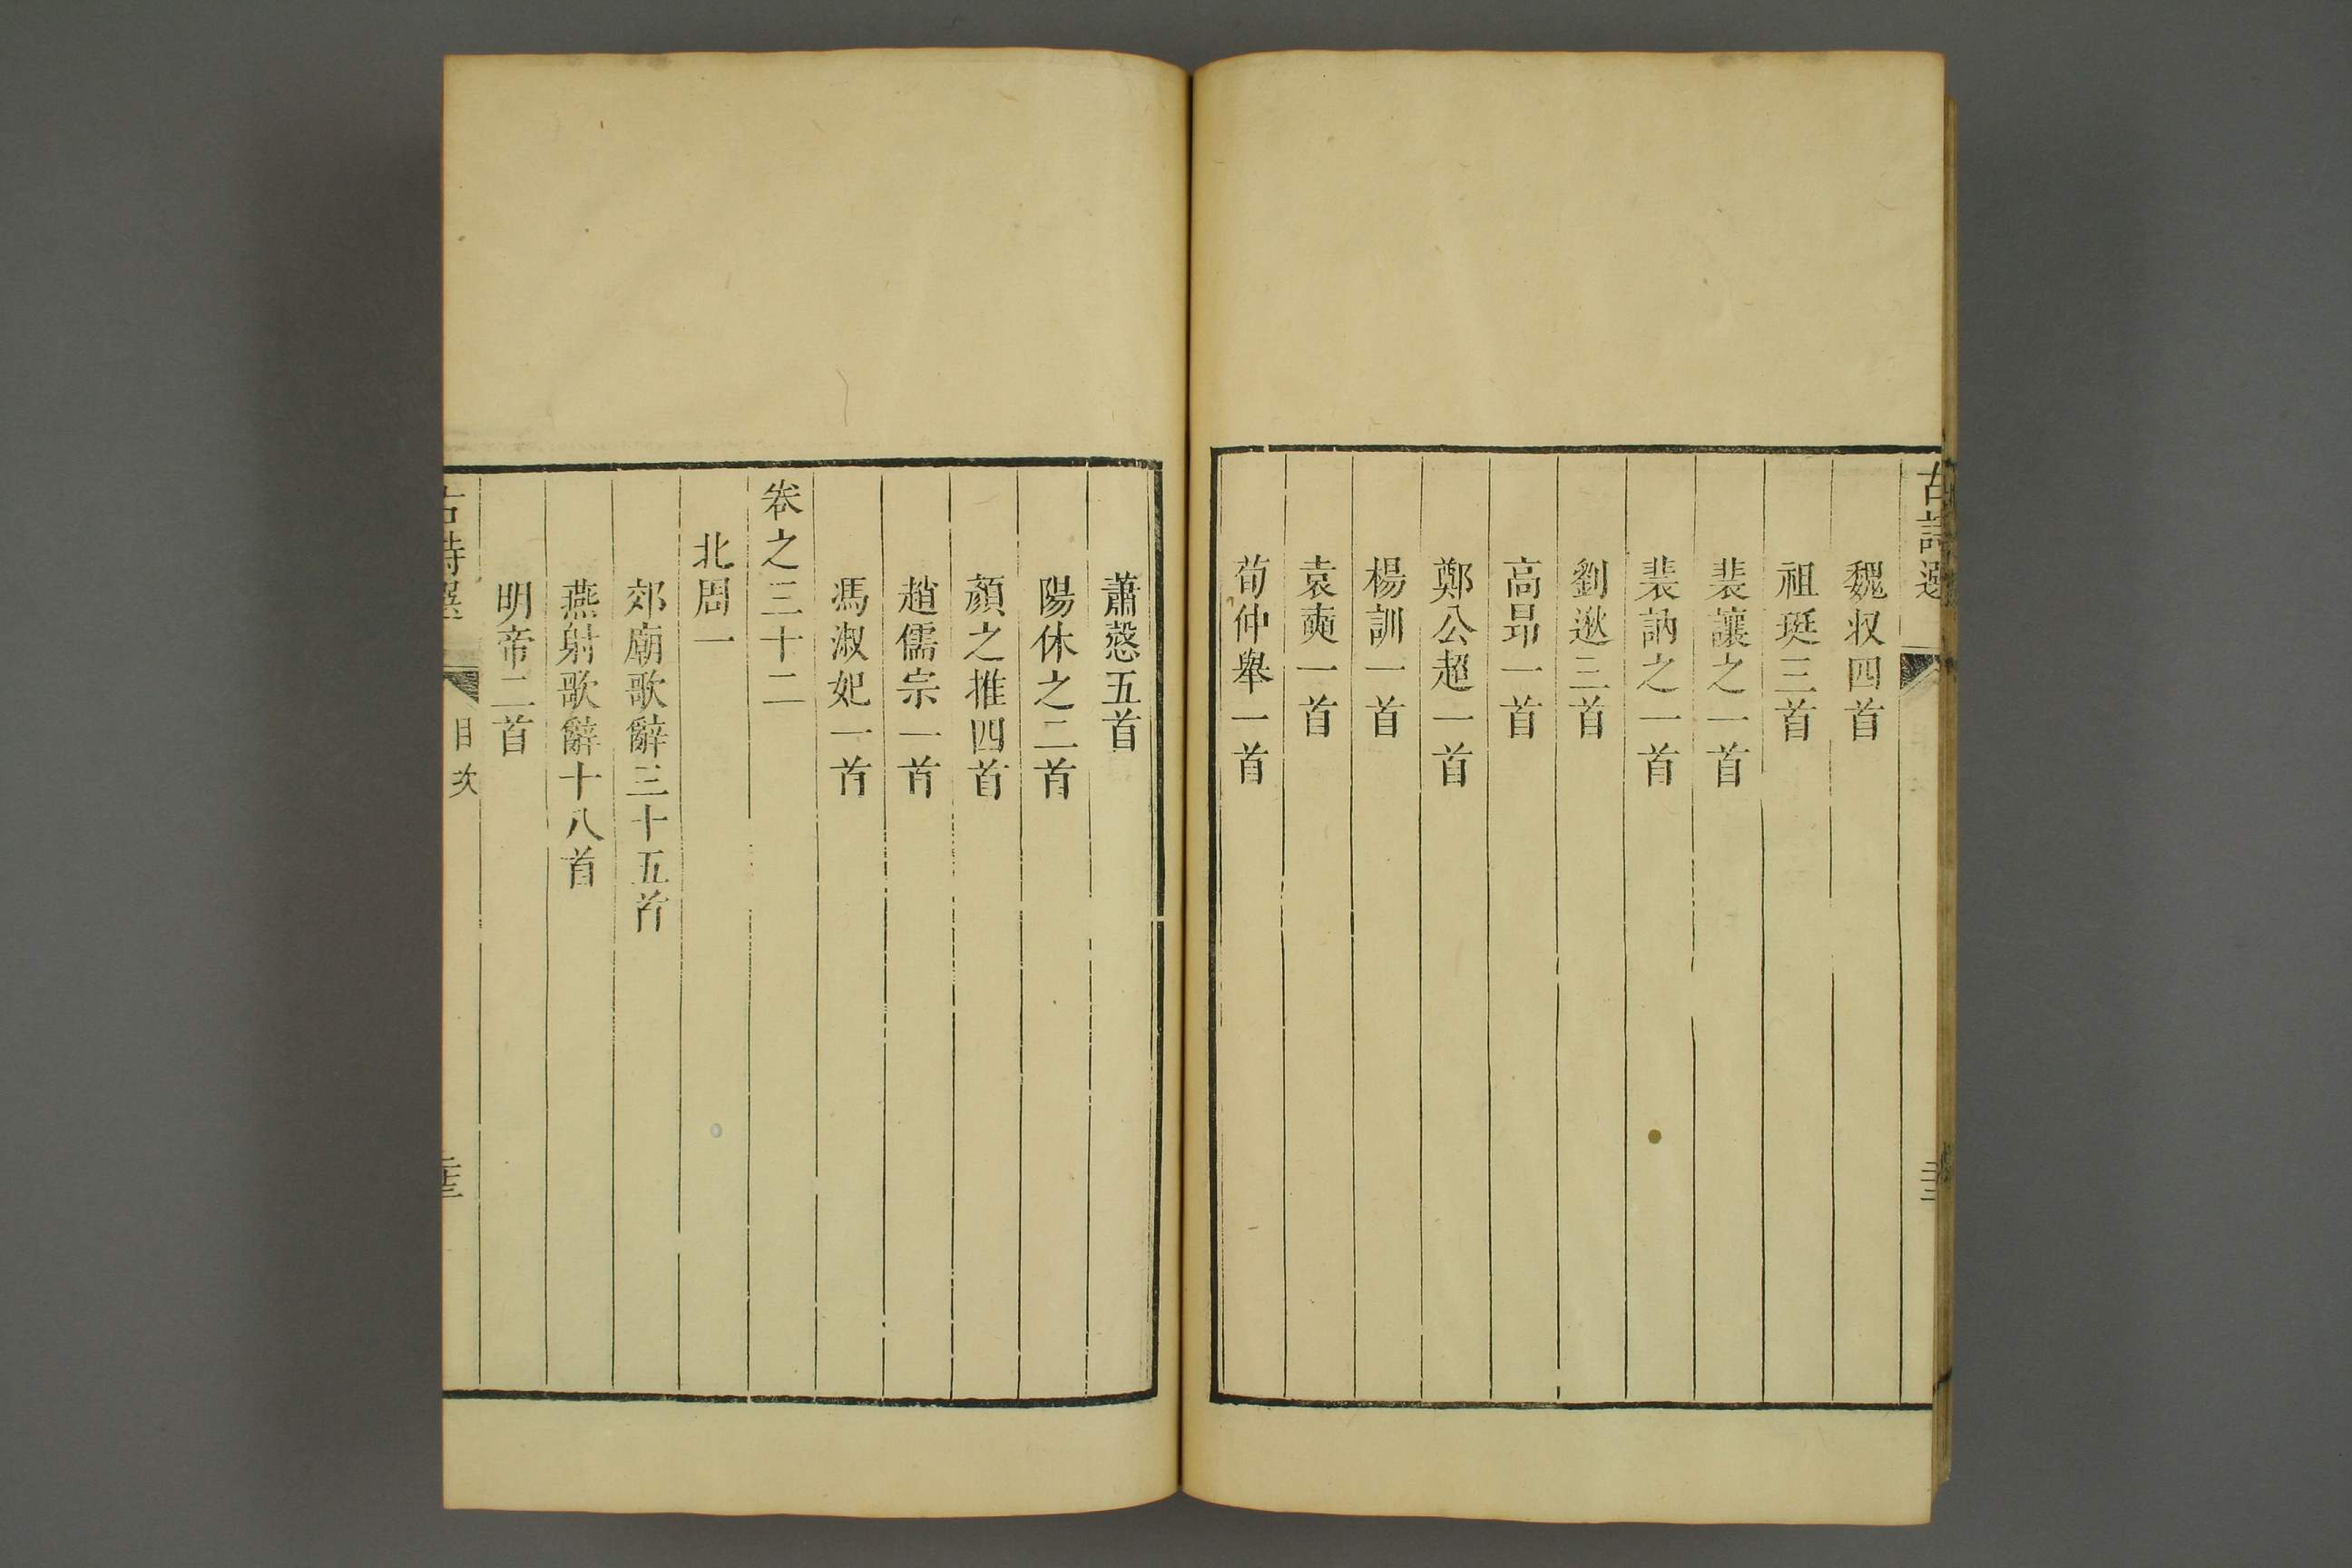 古詩選
魏収四首
祖珽三首
裴讓之一首
裴訥之一首
劉逖三首
高昂一首
鄭公超一首
楊訓一首
袁奭一首
荀仲舉一首
蕭慤五首
陽休之二首
顏之推四首
趙儒宗一首
馮淑妃一首
卷之三十二
北周一
郊廟歌辭三十五首
燕射歌辭十八首
明帝二首
古詩選
目次